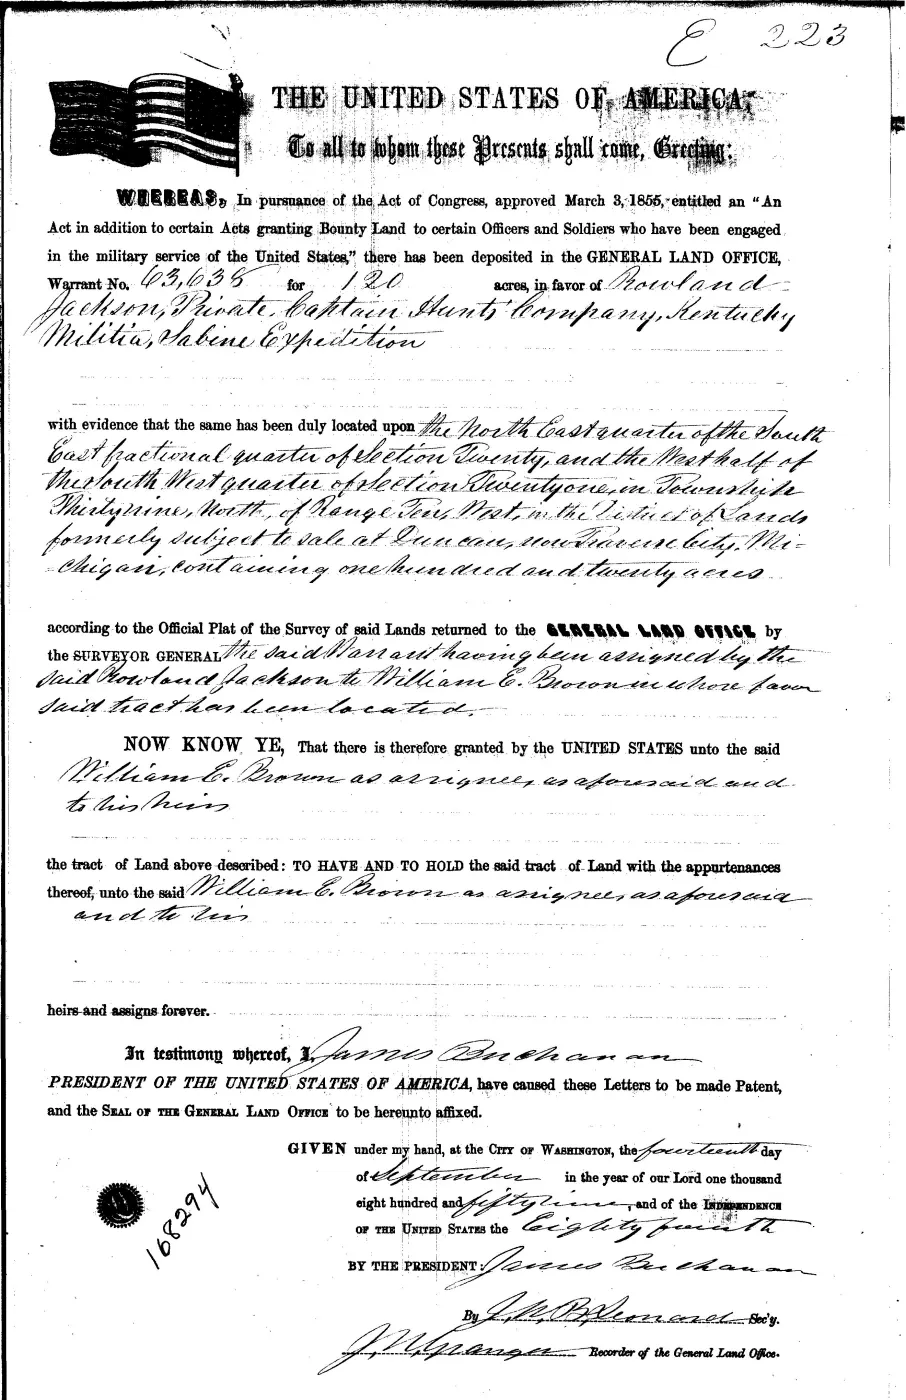 E 223
THE UNITED STATES OF AMERICA,
To all to whom these Presents shall come, Greeting:
WHEREAS, In pursuance of the Act of Congress, approved March 3, 1855, entitled an "An
Act in addition to certain Acts granting Bounty Land to certain Officers and Soldiers who have been engaged
in the military service of the United States," there has been deposited in the GENERAL LAND OFFICE,
Warrant No. 63,638 for 120 acres, in favor of Rowland
Jackson, Private, Captain Hunts' Company, Kentucky
Militia, Sabine Expedition
with evidence that the same has been duly located upon the North East quarter of the South
East fractional quarter of Section Twenty, and the West half of
the South West quarter of Section Twenty one, in Township
Thirty nine, North, of Range Ten, West, in the District of Lands
formerly subject to sale at Duncan, now Traverse City, Mi-
chigan, containing one hundred and twenty acres
according to the Official Plat of the Survey of said Lands returned to the GENERAL LAND OFFICE by
the SURVEYOR GENERAL the said Warrant having been assigned by the
said Rowland Jackson to William E. Brown in whose favor
said tract has been located.
NOW KNOW YE, That there is therefore granted by the UNITED STATES unto the said
William E. Brown as assignee, as aforesaid and
to his heirs
the tract of Land above described: TO HAVE AND TO HOLD the said tract of Land with the appurtenances
thereof, unto the said William E. Brown as assignee, as aforesaid
and to his
heirs and assigns forever.
In testimony whereof, I, James Buchanan
PRESIDENT OF THE UNITED STATES OF AMERICA, have caused these Letters to be made Patent,
and the SEAL OF THE GENERAL LAND OFFICE to be hereunto affixed.
GIVEN under my hand, at the CITY OF WASHINGTON, the fourteenth day
of September in the year of our Lord one thousand
eight hundred and fifty nine, and of the INDEPENDENCE
OF THE UNITED STATES the Eighty fourth
BY THE PRESIDENT: James Buchanan
By J. N. B. Leonard Sec'y.
J. N. Granger Recorder of the General Land Office.
168294